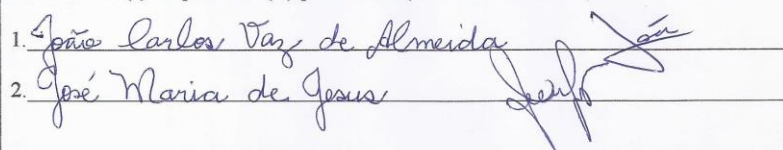 1. João Carlos Vaz de Almeida
2. José Maria de Jesus